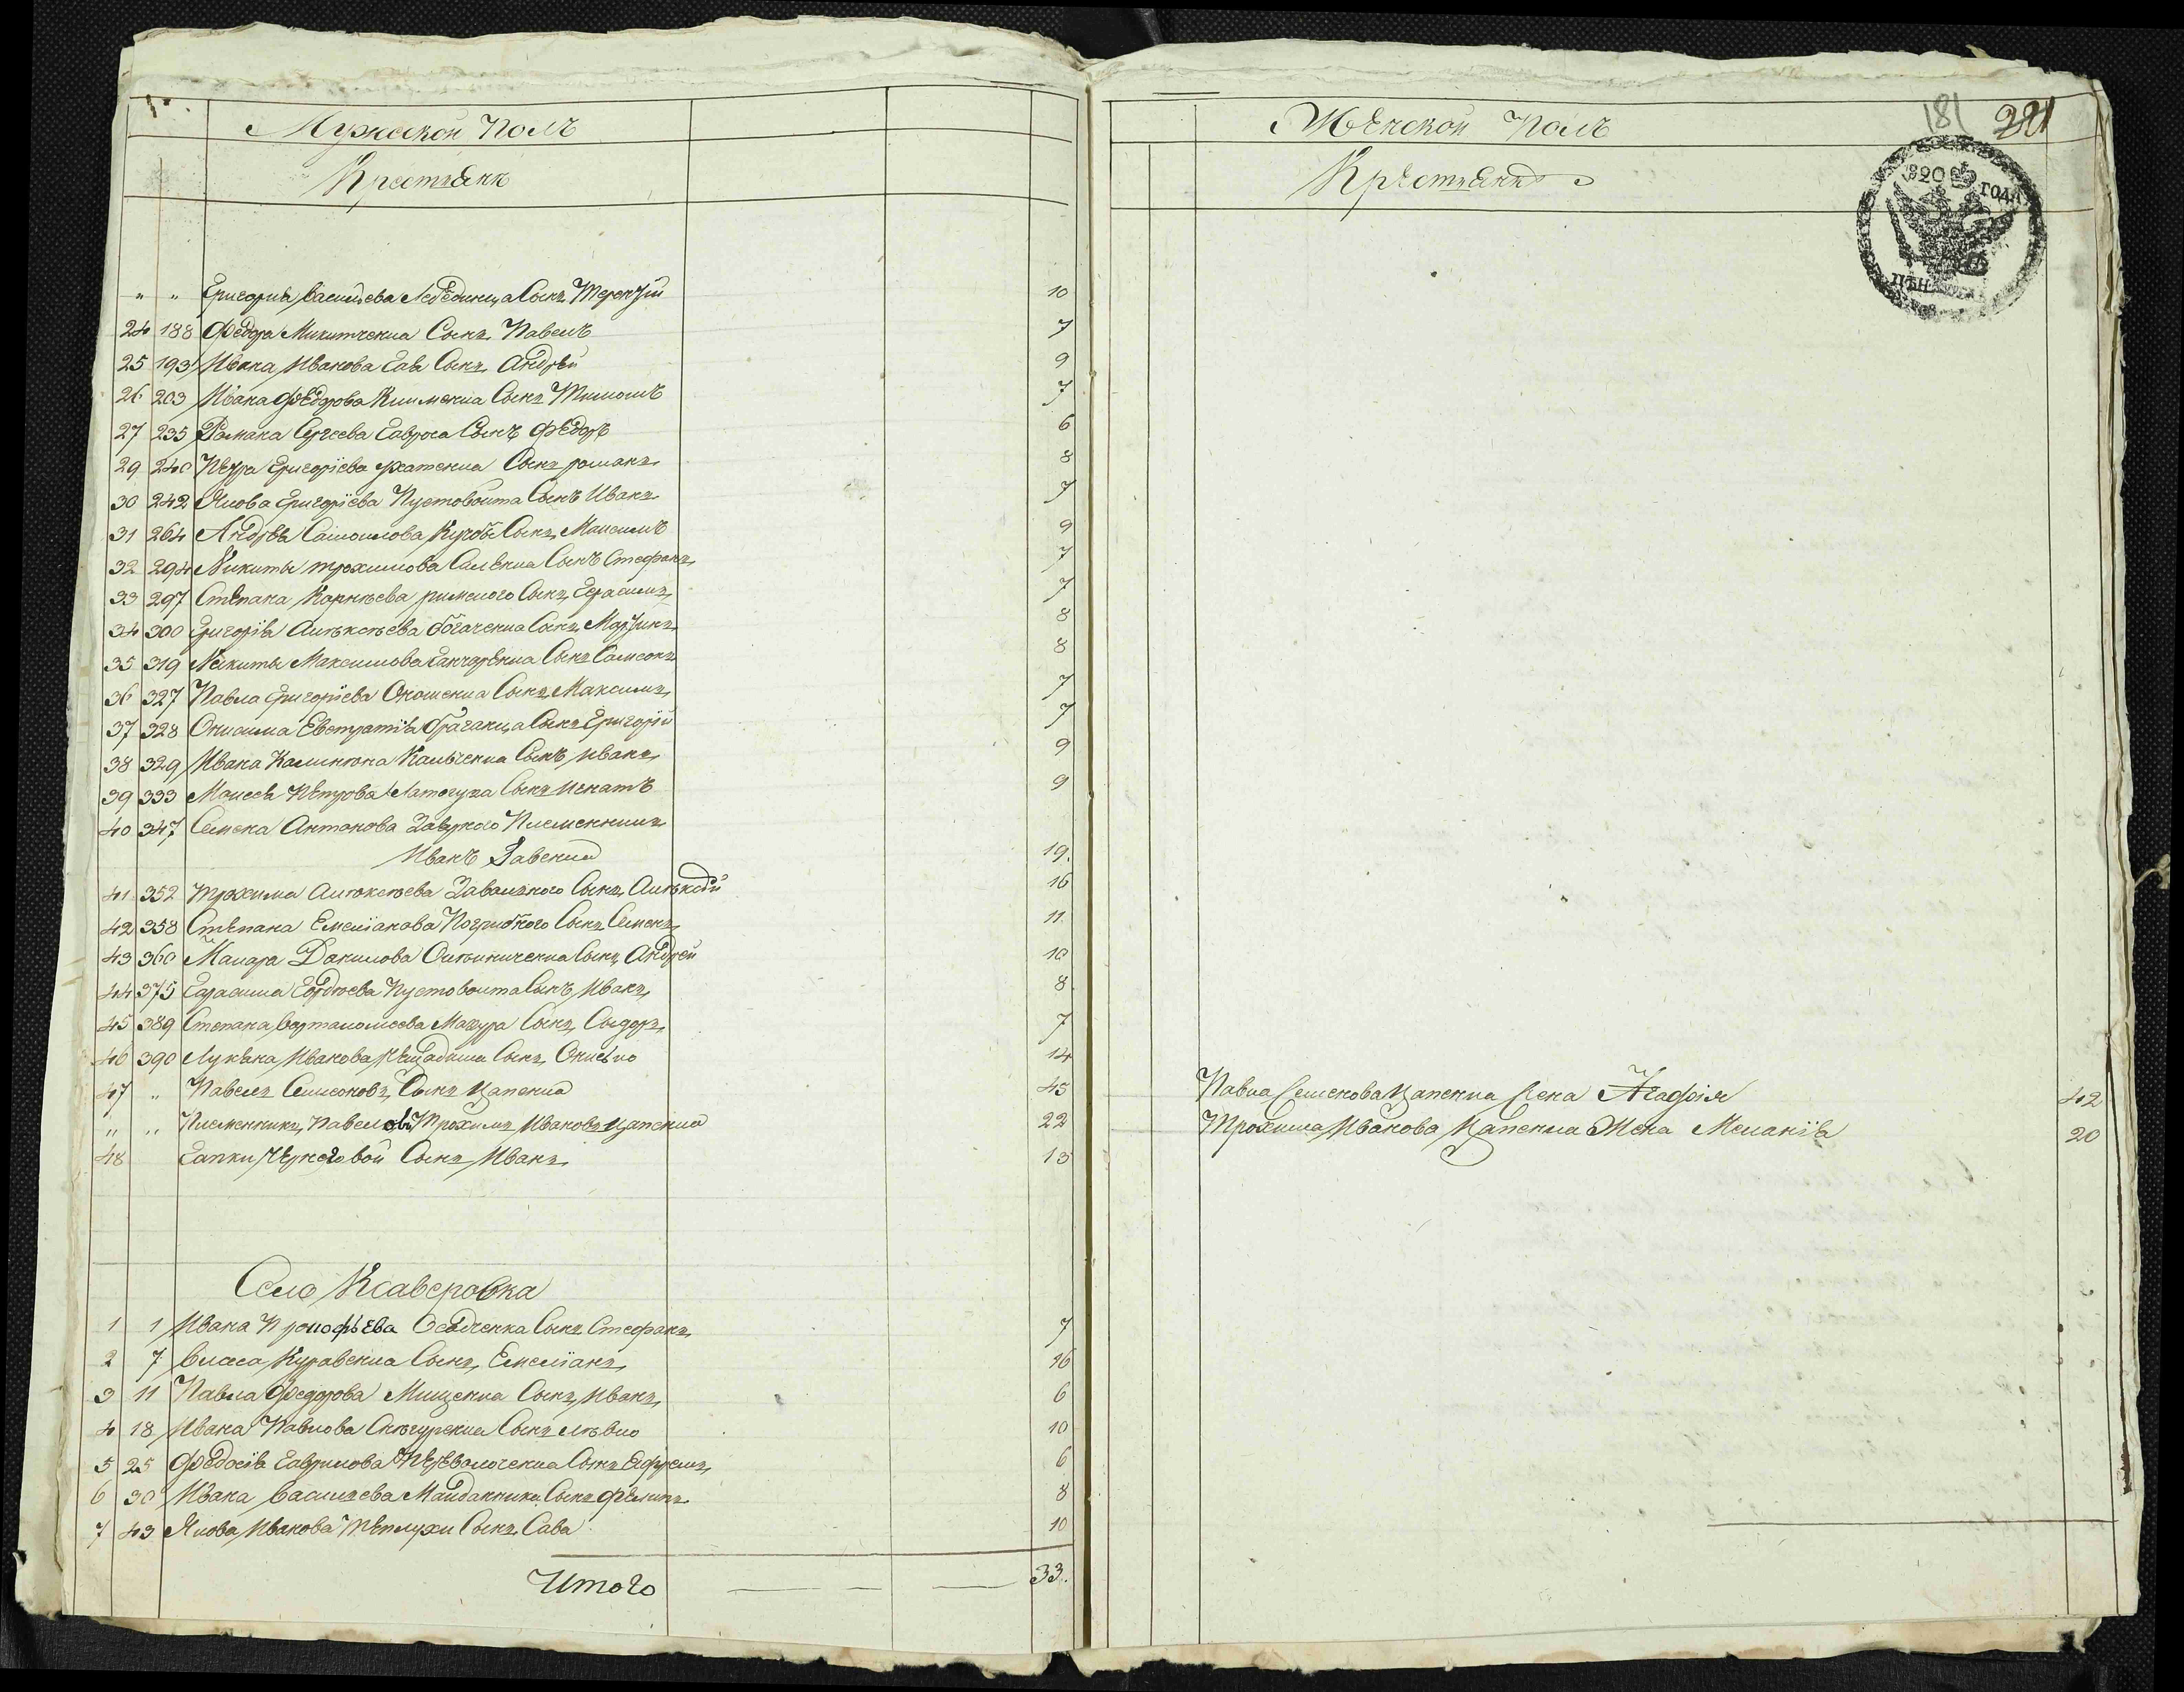 Мужской Полъ
Крестьянъ
" " Григорія Васильева Лебединца Сынъ Терентій 10
24 188 Федора Микитченка Сынъ Павелъ 7
25 193 Ивана Иванова Сынъ Андрей 9
26 203 Ивана Федорова Клименка Сынъ Тимошъ 7
27 235 Романа Сергеева Гавроса Сынъ Федоръ 6
29 240 Петра Григоріева Сынъ романъ 8
30 242 Якова Григоріева Пустовойта Сынъ Иванъ 7
31 264 Андрѣя Самоилова Сынъ Максимъ 9
32 294 Никиты трохимова Сынъ Стефанъ 7
33 297 Степана Корнѣева римского Сынъ Герасимъ 7
34 300 Григорія Алѣксѣева Богаченка Сынъ Мартинъ 8
35 319 Никиты Максимова Ганчаренка Сынъ Самсонъ 8
36 327 Павла Григоріева Сынъ Максимъ 7
37 328 Онисима Евстратія Сынъ Григорій 7
38 329 Ивана Сынъ Иванъ 9
39 333 Моисея Петрова Сынъ Игнатъ 9
40 347 Семена Антонова Племенникъ
Иванъ 19.
41 352 трохима Алѣксѣева Завального Сынъ Алѣксѣй 16
42 358 Степана Емеліанова Погрибного Сынъ Семенъ 11
43 360 Макара Данилова Сынъ Андрей 10
44 375 Гарасима Гордѣева Пустовойта Сынъ Иванъ 8
45 389 Степана Вартоломеева Мазура Сынъ Сыдоръ 7
46 390 Лукьяна Иванова Сынъ 14
47 " Павелъ Семеновъ Сынъ Цапенко 45
" " Племенникъ Павеловъ Трохимъ Ивановъ Цапенко 22
48 Гапки Черновой Сынъ Иванъ 13
Село Ксаверовка
1 1 Ивана Прокофьева Осадченка Сынъ Стефанъ 7
2 7 Власа Журавенка Сынъ Емеліанъ 16
3 11 Павла Федорова Мищенка Сынъ Иванъ 6
4 18 Ивана Павлова Снѣгуренка Сынъ 10
5 25 Федосія Гаврилова Переволоченка Сынъ Ефремъ 6
6 30 Ивана Васильева Майданника Сынъ Филипъ 8
7 43 Якова Иванова Теплухи Сынъ Сава 10
Итого 33.
Женской Полъ
181 221
Крестьянъ
1820 ГОДА
Павла Семенова Цапенка Жена Агафія 42
Трохима Иванова Цапенка Жена Меланія 20